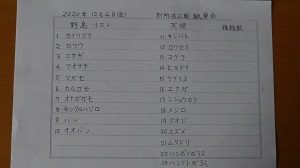 2020年 12月4日(金) 観察会
野鳥 リスト 天候 種類数
1 カイツブリ 11 キジバト
2 カワウ 12 カワセミ
3 コサギ 13 コゲラ
4 アオサギ 14 ヒヨドリ
5 マガモ 15 ウグイス
6 カルガモ 16 エナガ
7 オナガガモ 17 シジュウカラ
8 キンクロハジロ 18 メジロ
9 バン 19 アオジ
10 オオバン 20 スズメ
21 ムクドリ
22 ハシボソガラス
23 ハシブトガラス